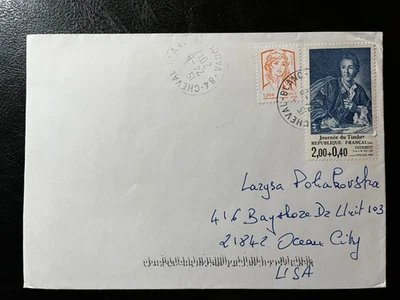 84-CHEVAL-BLANC
CHEVAL-BLANC
Journée du Timbre
RÉPUBLIQUE FRANÇAISE
DIDEROT
2,00+0,40
Larysa Poliakovska
416 Bayshore Dr Unit 103
21842 Ocean City
USA